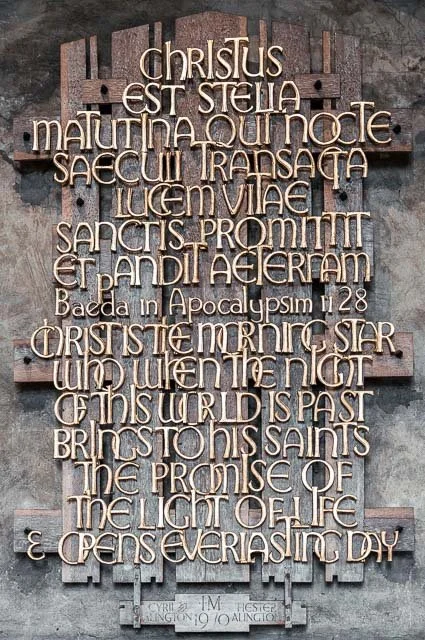 CHRISTUS
EST STELLA
MATUTINA QUI NOCTE
SAECULI TRANSACTA
LUCEM VITAE
SANCTIS PROMITTIT
ET PANDIT AETERNAM
Baeda in Apocalypsim ii 28
CHRIST IS THE MORNING STAR
WHO WHEN THE NIGHT
OF THIS WORLD IS PAST
BRINGS TO HIS SAINTS
THE PROMISE OF
THE LIGHT OF LIFE
& OPENS EVERLASTING DAY
CYRIL & IM HESTER
ALINGTON 1970 ALINGTON